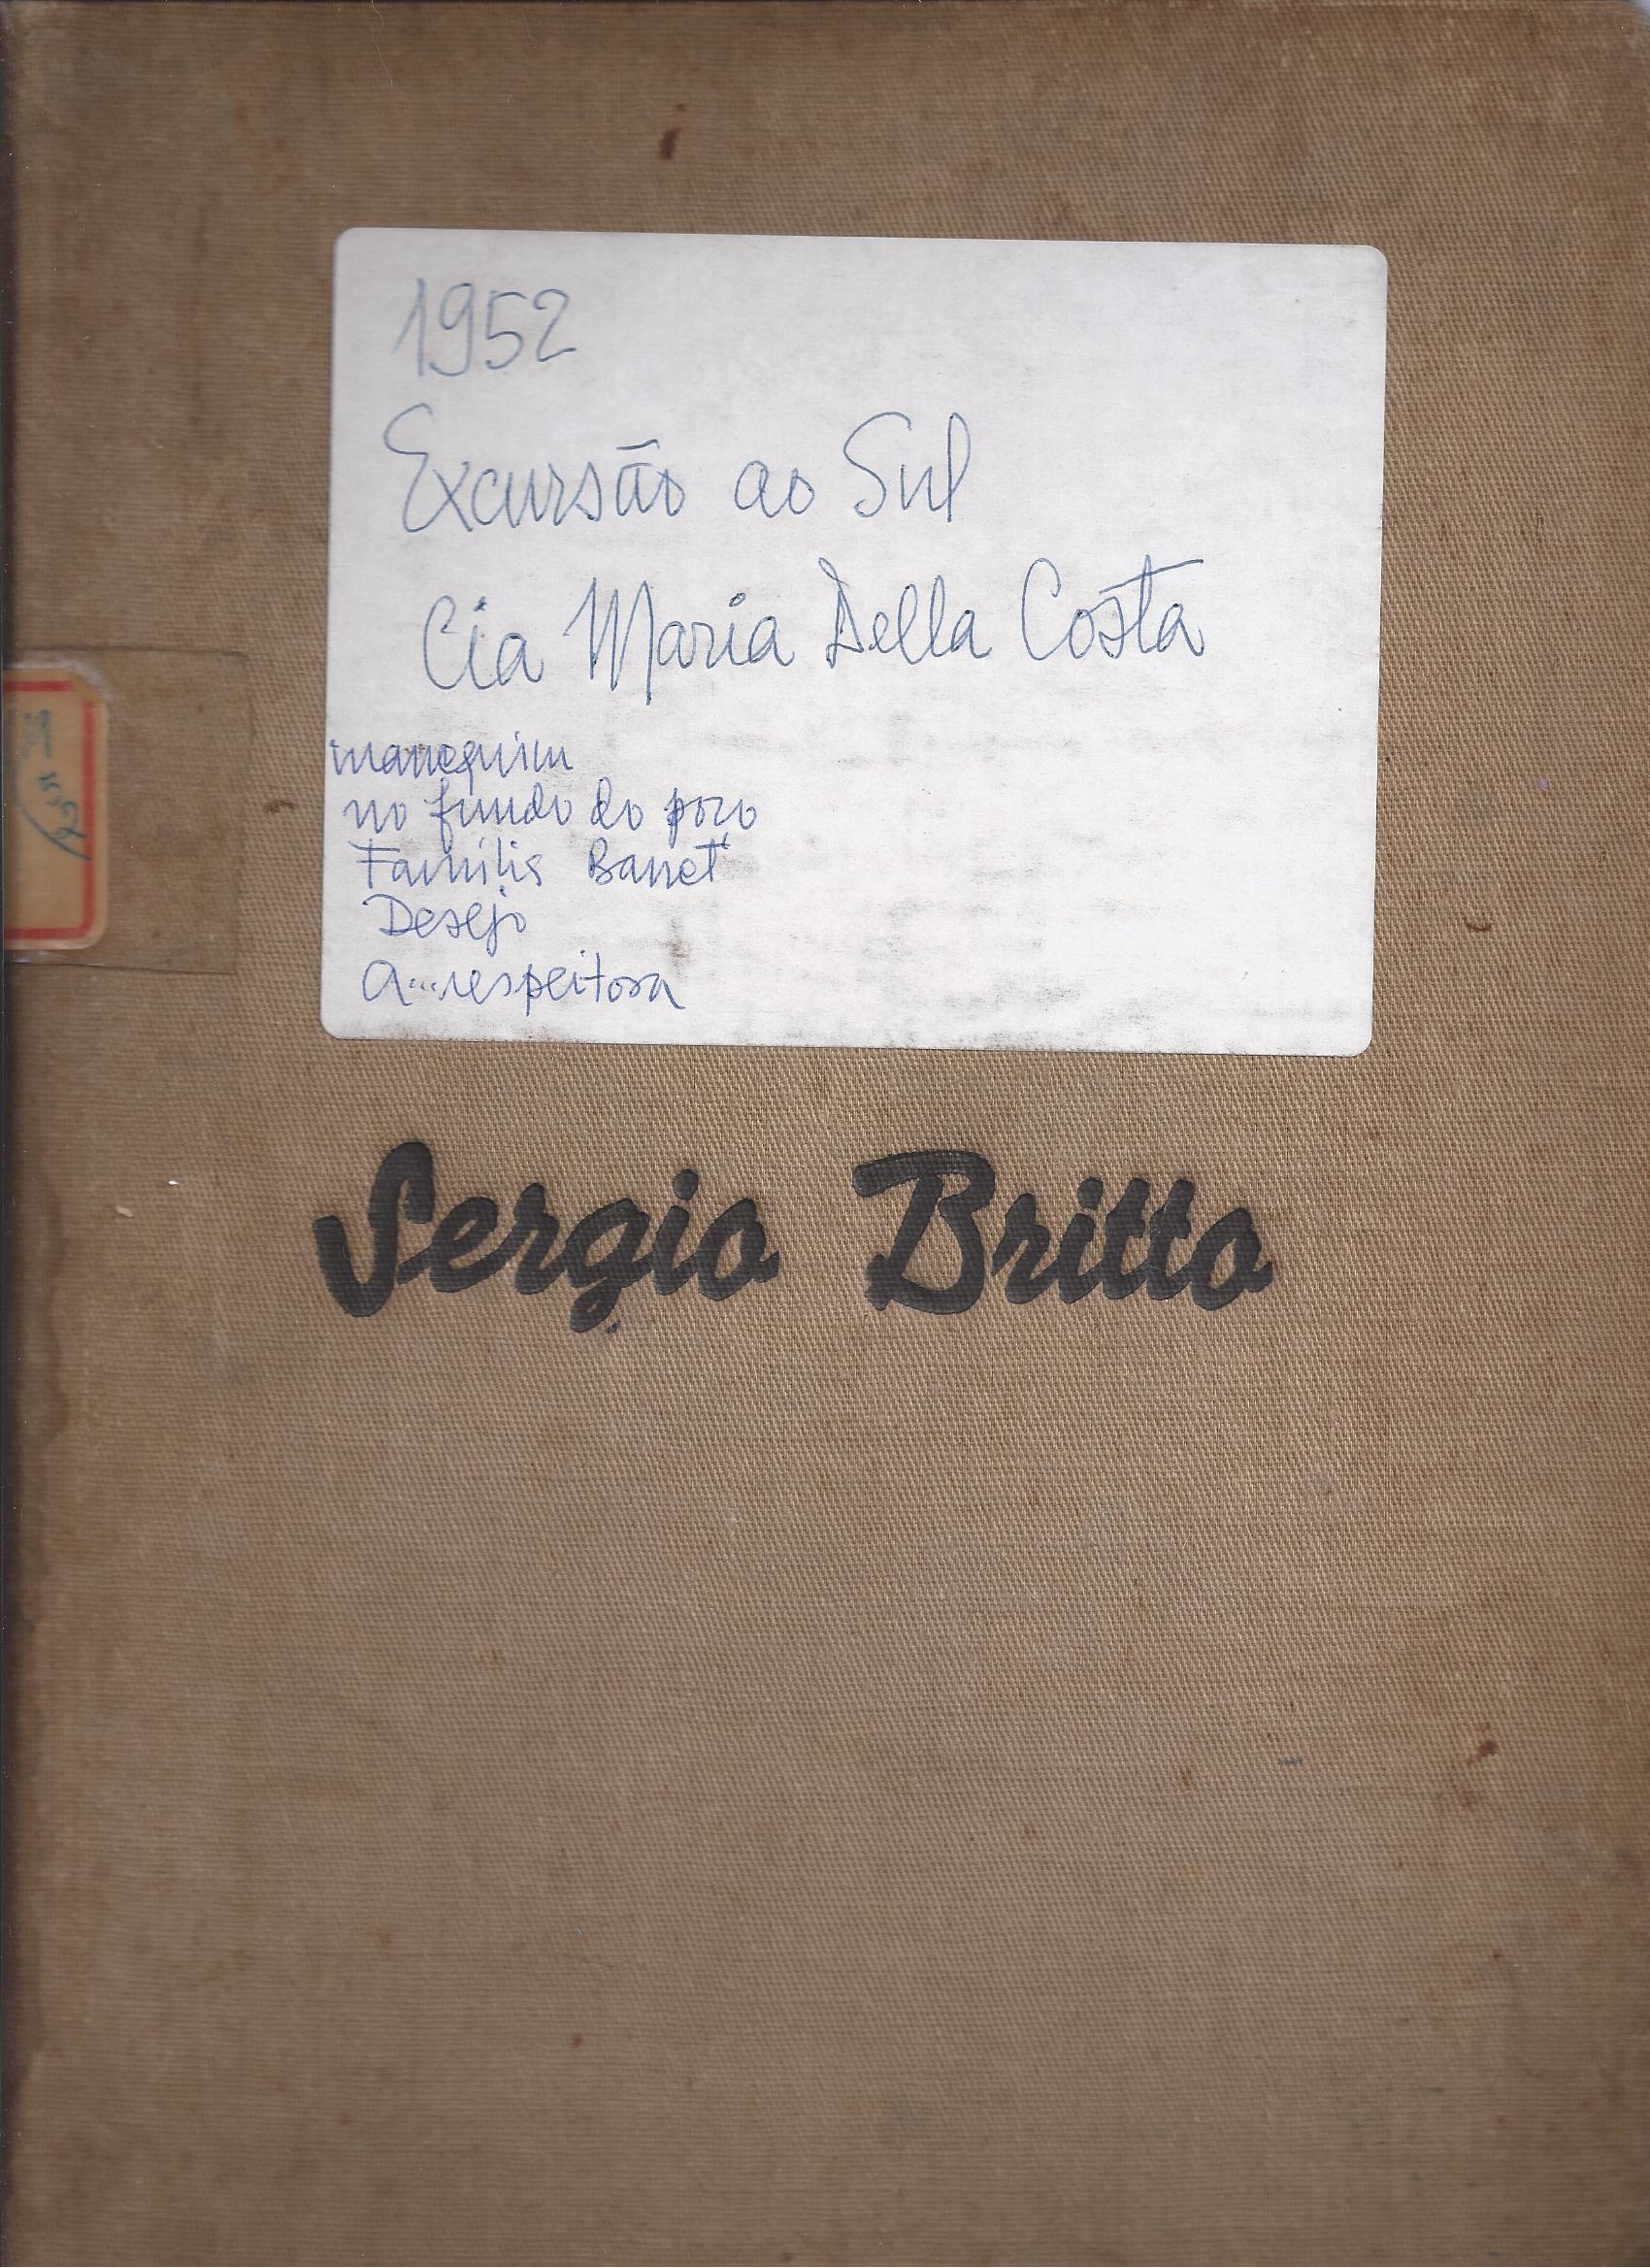 1952
Excursão ao Sul
Cia Maria Della Costa
manequim
no fundo do poço
Familia Barret
Desejo
a...respeitosa
Sergio Britto